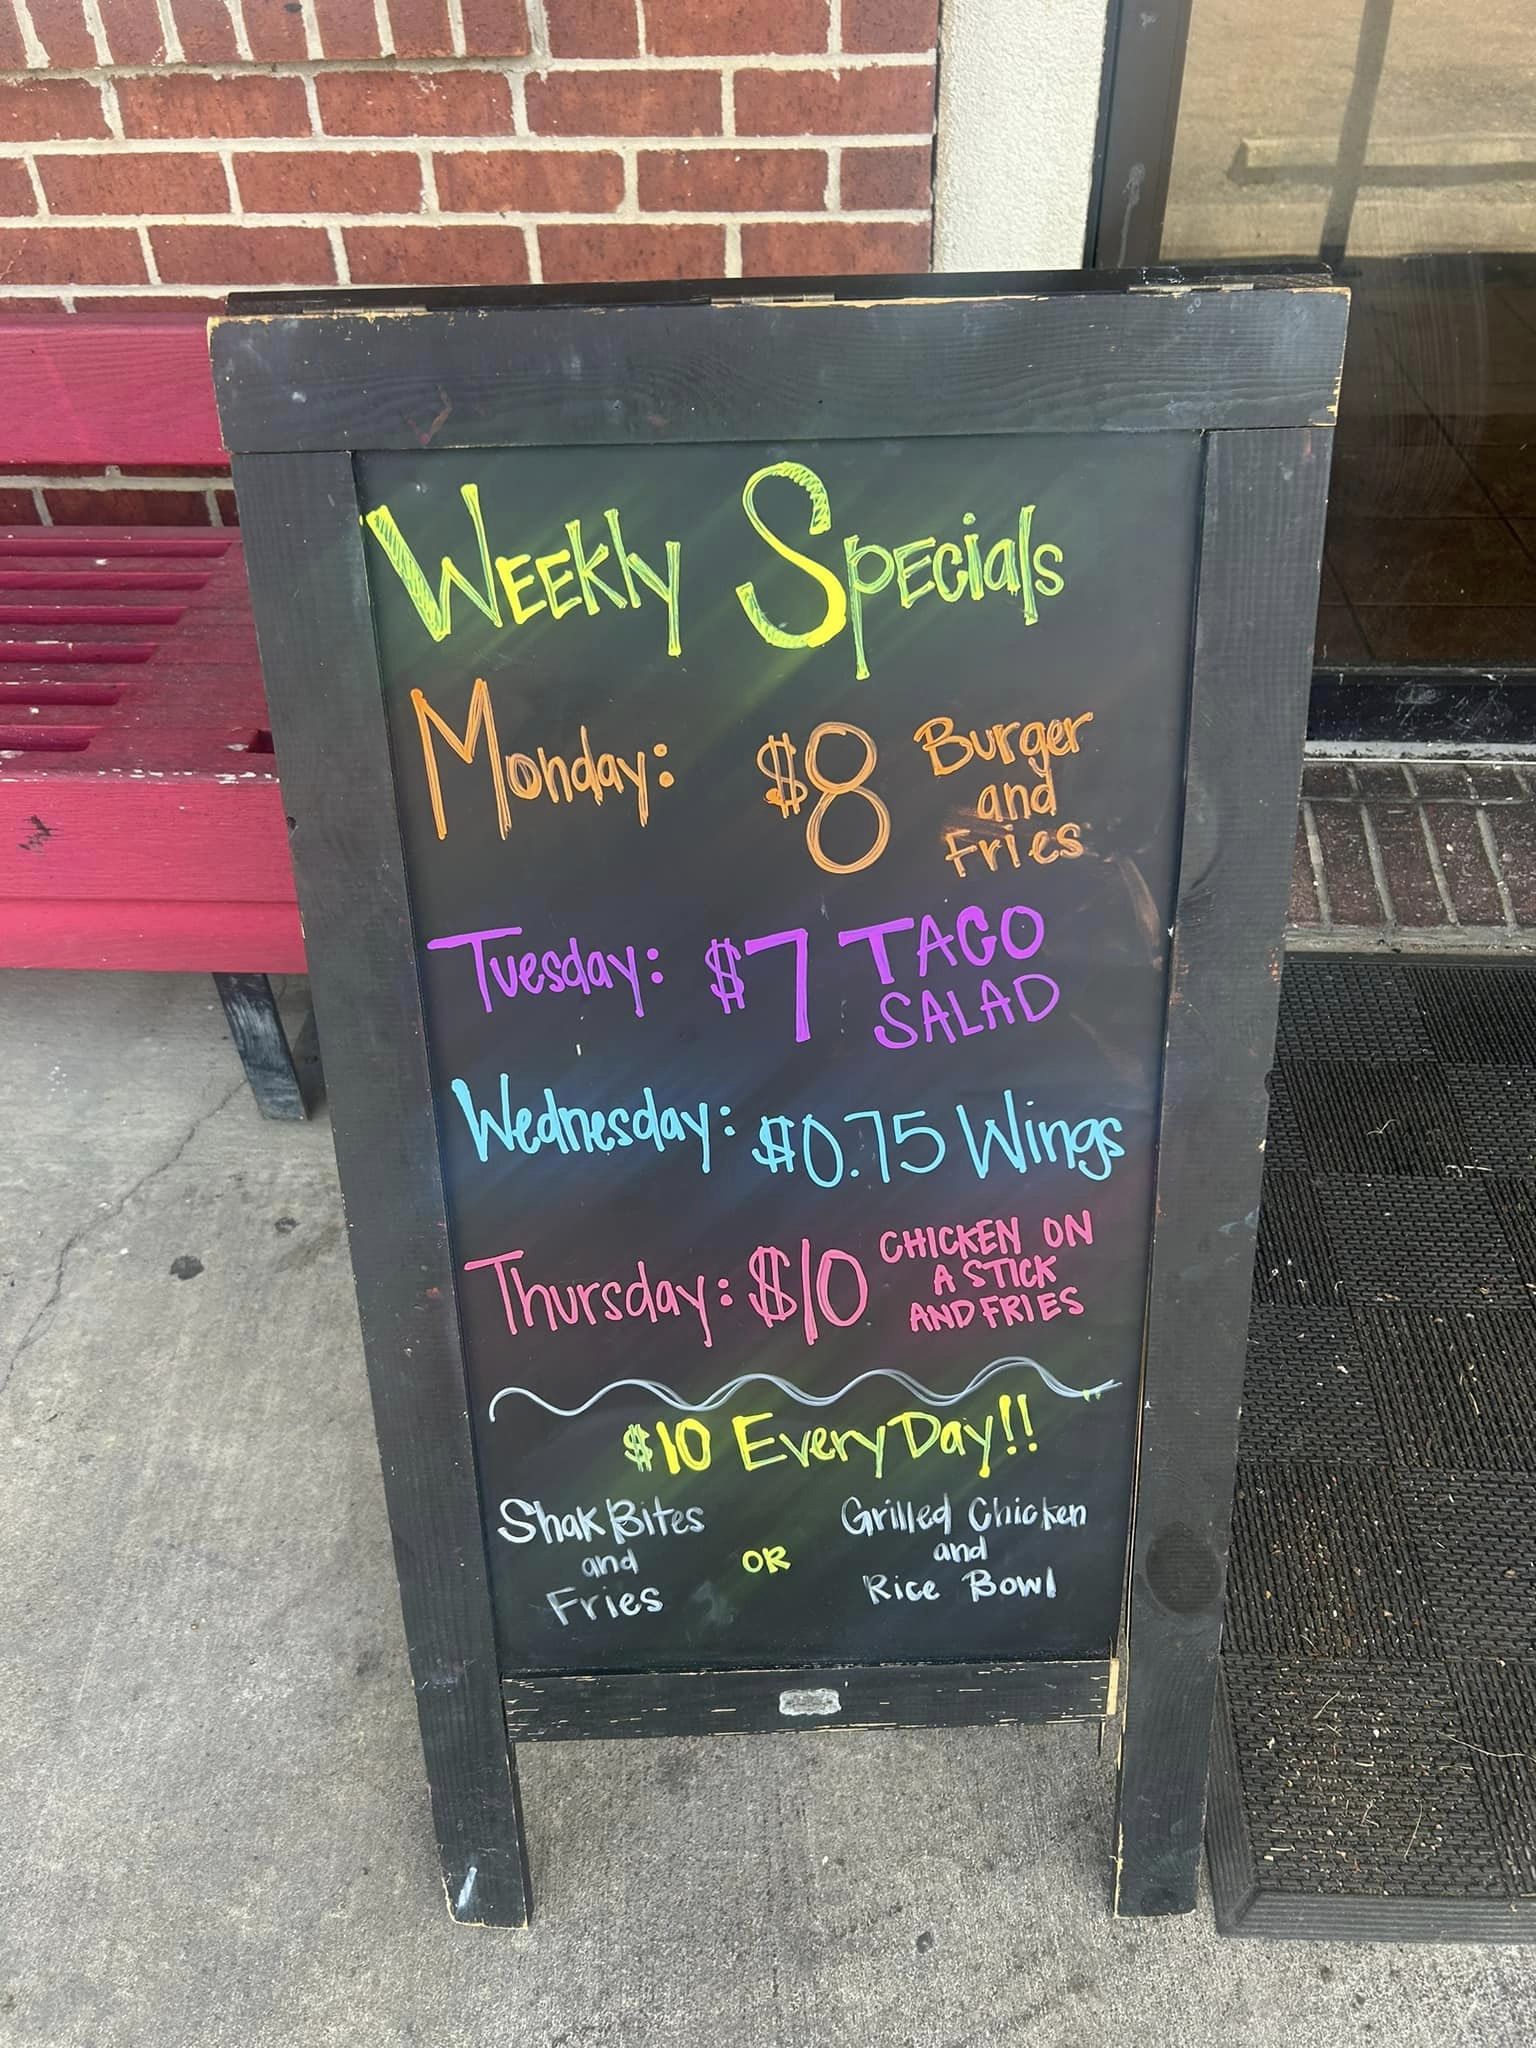 Weekly Specials
Monday: $8 Burger
and
Fries
Tuesday: $7 TACO
SALAD
Wednesday: $0.75 Wings
Thursday: $10 CHICKEN ON
A STICK
AND FRIES
$10 Every Day!!
Shak Bites
and
Fries
OR
Grilled Chicken
and
Rice Bowl